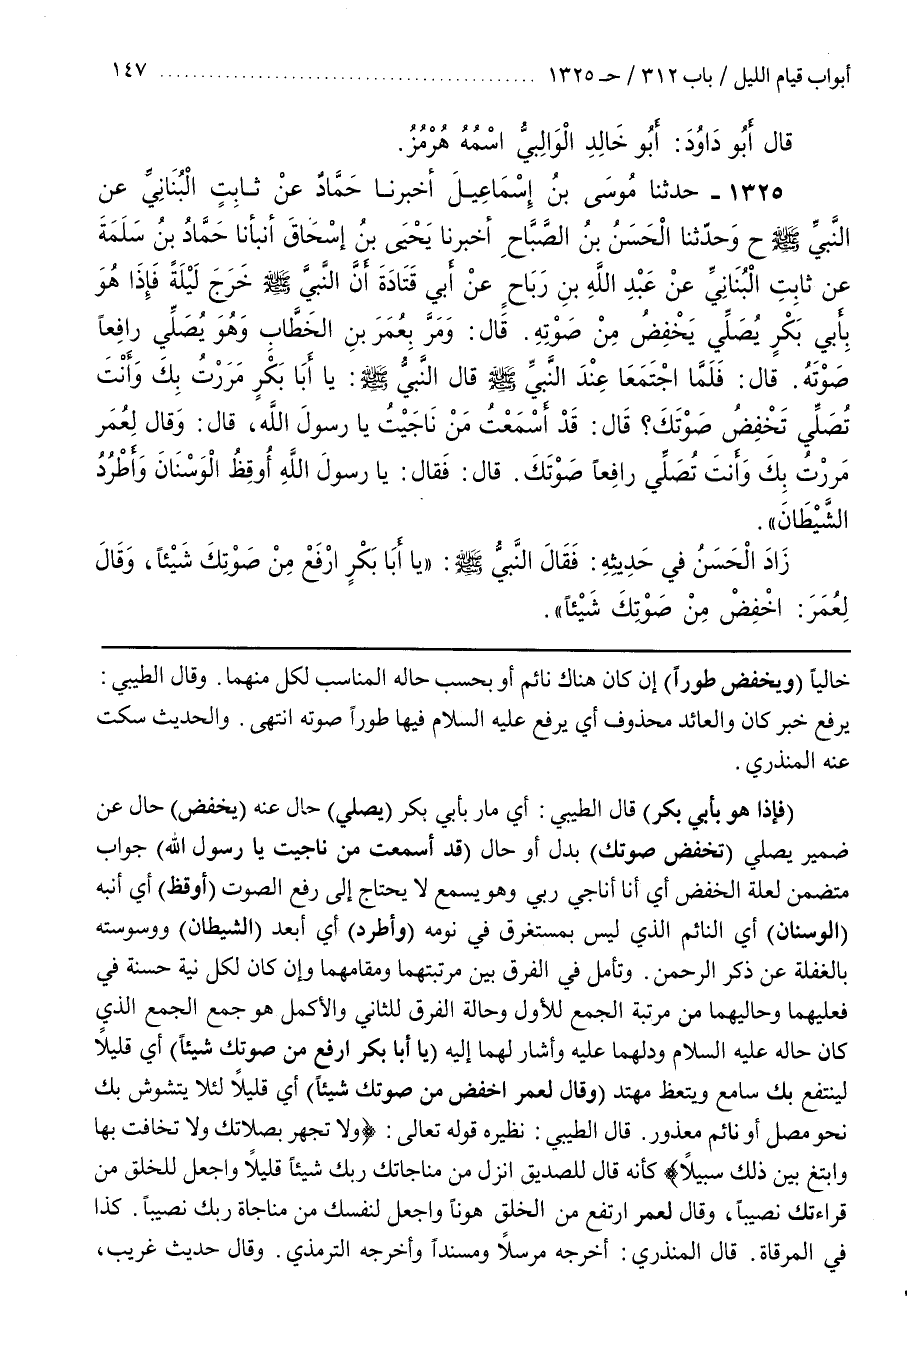 أبواب قيام الليل / باب ٣١٢ / حـ ١٣٢٥ ............................................ ١٤٧
قال أَبُو دَاوُدَ: أَبُو خَالِدِ الْوَالِبِيُّ اسْمُهُ هُرْمُزُ.
١٣٢٥ ـ حدثنا مُوسَى بنُ إِسْمَاعِيلَ أخبرنا حَمَّادٌ عنْ ثابِتٍ الْبُنَانِيِّ عن
النَّبيِّ ﷺ ح وَحدّثنا الْحَسَنُ بنُ الصَّبَّاحِ أخبرنا يَحْيَى بنُ إسْحَاقَ أنبأنا حَمَّادُ بنُ سَلَمَةَ
عن ثابتِ الْبُنَانِيِّ عنْ عَبْدِ اللَّهِ بنِ رَبَاحٍ عنْ أبي قَتَادَةَ أَنَّ النَّبيَّ ﷺ خَرَجَ لَيْلَةً فَإِذَا هُوَ
بِأبي بَكْرٍ يُصَلِّي يَخْفِضُ مِنْ صَوْتِهِ. قَال: وَمَرَّ بِعُمَرَ بنِ الخَطَّابِ وَهُوَ يُصَلِّي رافِعاً
صَوْتَهُ. قال: فَلَمَّا اجْتَمَعَا عِنْدَ النَّبيِّ ﷺ قال النَّبيُّ ﷺ: يا أبَا بَكْرٍ مَرَرْتُ بِكَ وَأَنْتَ
تُصَلِّي تَخْفِضُ صَوْتَكَ؟ قَال: قَدْ أَسْمَعْتُ مَنْ نَاجَيْتُ يا رسولَ الله، قال: وَقال لِعُمَرَ
مَررْتُ بِكَ وَأَنتَ تُصَلِّي رافِعاً صَوْتَكَ. قال: فَقال: يا رسولَ اللَّهِ أُوقِظُ الْوَسْنَانَ وَأَطْرُدُ
الشَّيْطَانَ».
زَادَ الْحَسَنُ في حَدِيثِهِ: فَقَالَ النَّبيُّ ﷺ: «يا أَبَا بَكْرٍ ارْفَعْ مِنْ صَوْتِكَ شَيْئاً، وَقَالَ
لِعُمَرَ: اخْفِضْ مِنْ صَوْتِكَ شَيْئاً».
خالياً (ويخفض طوراً) إن كان هناك نائم أو بحسب حاله المناسب لكل منهما. وقال الطيبي:
يرفع خبر كان والعائد محذوف أي يرفع عليه السلام فيها طوراً صوته انتهى. والحديث سكت
عنه المنذري.
(فإذا هو بأبي بكر) قال الطيبي: أي مار بأبي بكر (يصلي) حال عنه (يخفض) حال عن
ضمير يصلي (تخفض صوتك) بدل أو حال (قد أسمعت من ناجيت يا رسول الله) جواب
متضمن لعلة الخفض أي أنا أناجي ربي وهو يسمع لا يحتاج إلى رفع الصوت (أوقظ) أي أنبه
(الوسنان) أي النائم الذي ليس بمستغرق في نومه (وأطرد) أي أبعد (الشيطان) ووسوسته
بالغفلة عن ذكر الرحمن. وتأمل في الفرق بين مرتبتهما ومقامهما وإن كان لكل نية حسنة في
فعليهما وحاليهما من مرتبة الجمع للأول وحالة الفرق للثاني والأكمل هو جمع الجمع الذي
كان حاله عليه السلام ودلهما عليه وأشار لهما إليه (يا أبا بكر ارفع من صوتك شيئاً) أي قليلاً
لينتفع بك سامع ويتعظ مهتد (وقال لعمر اخفض من صوتك شيئاً) أي قليلاً لئلا يتشوش بك
نحو مصل أو نائم معذور. قال الطيبي: نظيره قوله تعالى: ﴿ولا تجهر بصلاتك ولا تخافت بها
وابتغ بين ذلك سبيلاً﴾ كأنه قال للصديق انزل من مناجاتك ربك شيئاً قليلاً واجعل للخلق من
قراءتك نصيباً، وقال لعمر ارتفع من الخلق هوناً واجعل لنفسك من مناجاة ربك نصيباً. كذا
في المرقاة. قال المنذري: أخرجه مرسلاً ومسنداً وأخرجه الترمذي. وقال حديث غريب،